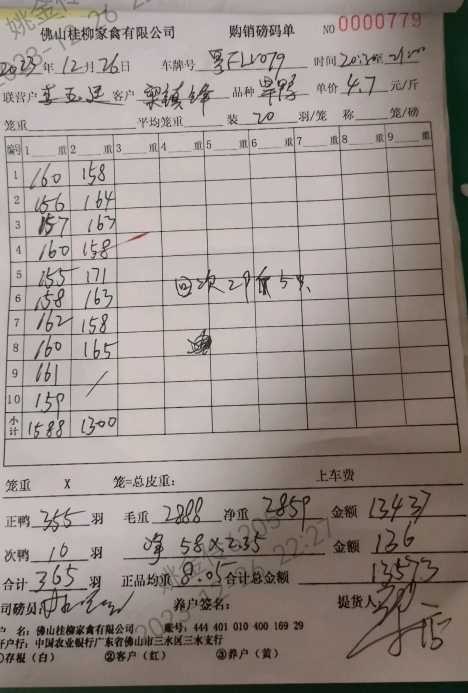 佛山桂柳家禽有限公司 购销磅码单 NO 0000779
2023年12月26日 车牌号 粤FLL079 时间
联营户 客户 梁镇锋 品种 旱鸭 单价 4.7 元/斤
笼重 平均笼重 装 20 羽/笼 称 笼/磅
编号 1 重 2 重 3 重 4 重 5 重 6 重 7 重 8 重 9 重
1 160 158
2 156 164
3 157 163
4 160 158
5 155 171
6 158 163
7 162 158
8 160 165
9 161
10 159
小计 1588 1300
笼重 X 笼=总皮重: 上车费
正鸭 355 羽 毛重 2888 净重 2859 金额 13437
次鸭 10 羽 净 58×2.35 金额 136
合计 365 羽 正品均重 8.05 合计总金额 13573
司磅员 养户签名: 提货人
户 名: 佛山桂柳家禽有限公司 账号: 444 401 010 400 169 29
开户行: 中国农业银行广东省佛山市三水区三水支行
①存根(白) ②客户(红) ③养户(黄)